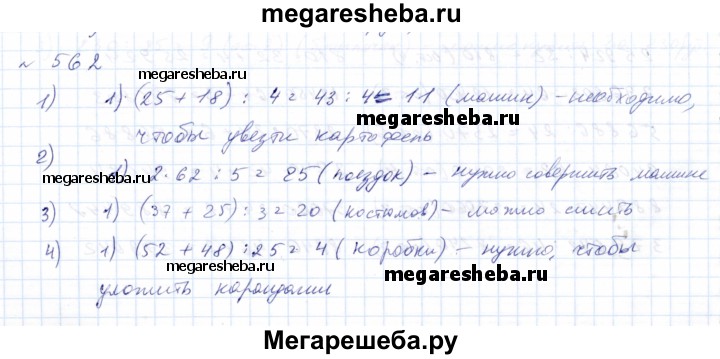 megaresheba.ru
№ 562
megaresheba.ru
1) 1) (25 + 18) : 4 = 43 : 4 = 11 (машин) – необходимо,
megaresheba.ru
чтобы увезти картофель
2)
megaresheba.ru 1) 2·62 : 5 = 25 (поездок) – нужно совершить машине
3) 1) (37 + 25) : 3 = 20 (костюмов) – можно сшить
4) 1) (52 + 48) : 25 = 4 (коробки) – нужно, чтобы
megaresheba.ru
уложить карандаши
Мегарешеба.ру